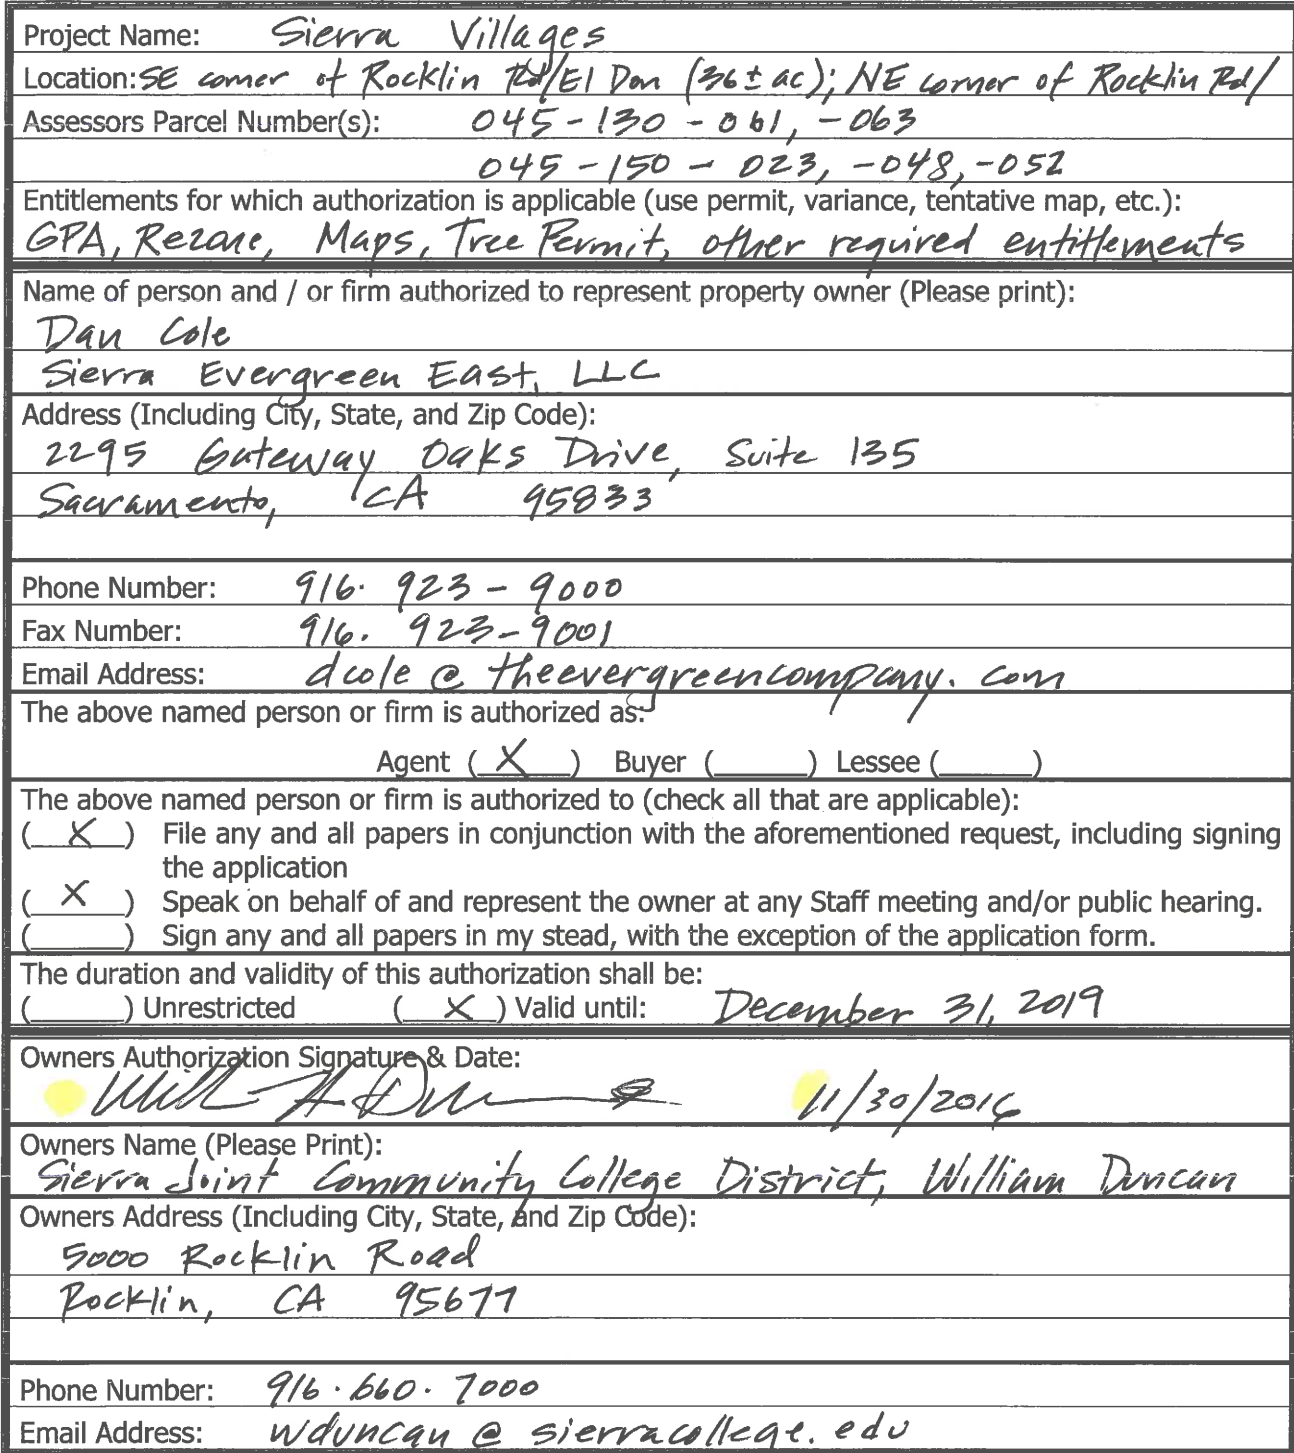 Project Name: Sierra Villages
Location: SE corner of Rocklin Rd/El Don (36± ac); NE corner of Rocklin Rd/
Assessors Parcel Number(s): 045-130-061, -063
045-150-023, -048, -052
Entitlements for which authorization is applicable (use permit, variance, tentative map, etc.):
GPA, Rezone, Maps, Tree Permit, other required entitlements
Name of person and / or firm authorized to represent property owner (Please print):
Dan Cole
Sierra Evergreen East, LLC
Address (Including City, State, and Zip Code):
2295 Gateway Oaks Drive, Suite 135
Sacramento, CA 95833
Phone Number: 916. 923-9000
Fax Number: 916. 923-9001
Email Address: dcole @ theevergreencompany.com
The above named person or firm is authorized as:
Agent ( X ) Buyer (____) Lessee (____)
The above named person or firm is authorized to (check all that are applicable):
( X ) File any and all papers in conjunction with the aforementioned request, including signing
the application
( X ) Speak on behalf of and represent the owner at any Staff meeting and/or public hearing.
(____) Sign any and all papers in my stead, with the exception of the application form.
The duration and validity of this authorization shall be:
(____) Unrestricted ( X ) Valid until: December 31, 2019
Owners Authorization Signature & Date:
11/30/2016
Owners Name (Please Print):
Sierra Joint Community College District, William Duncan
Owners Address (Including City, State, and Zip Code):
5000 Rocklin Road
Rocklin, CA 95677
Phone Number: 916.660.7000
Email Address: wduncan @ sierracollege.edu